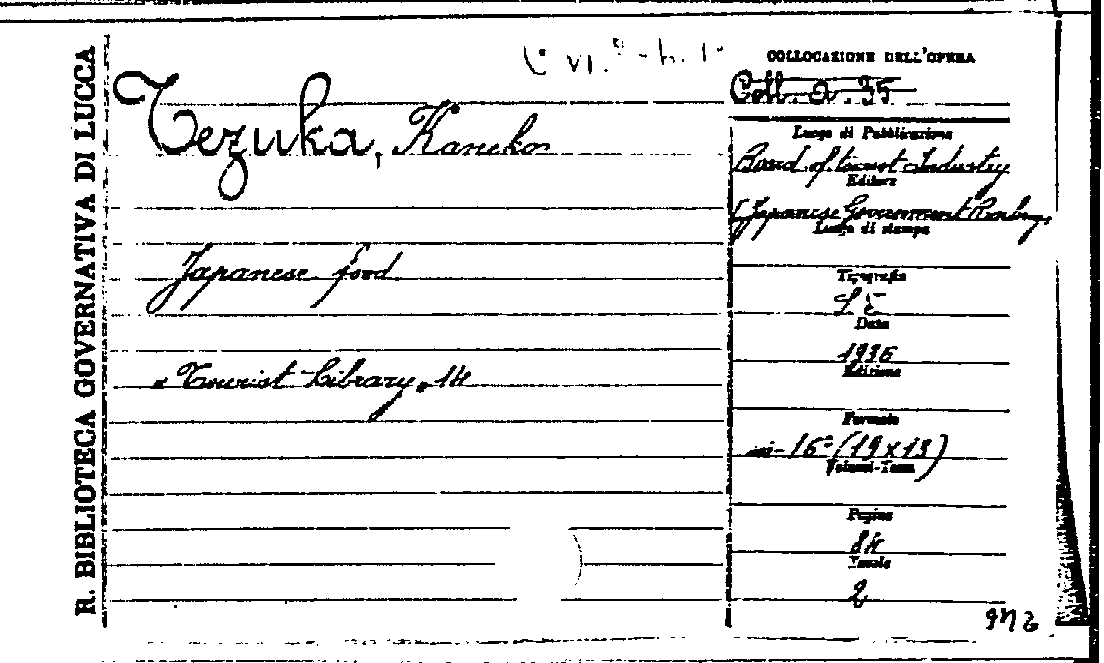 R. BIBLIOTECA GOVERNATIVA DI LUCCA
Tezuka, Kaneko
Japanese food
"Tourist Library" 14
COLLOCAZIONE DELL'OPERA
Coll. a. 35
Luogo di Pubblicazione
Board of tourist Industry
Editore
(Japanese Government Railways
Luogo di stampa
Tipografia
Data
1936
Edizione
Formato
in-16° (19x13)
Volumi-Tomi
Pagine
84
Tavole
2